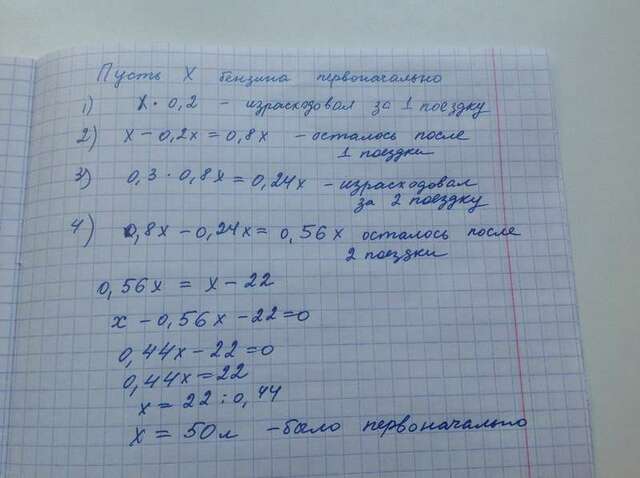 Пусть X бензина первоначально
1) X · 0,2 – израсходовал за 1 поездку
2) x – 0,2x = 0,8x – осталось после
1 поездки
3) 0,3 · 0,8x = 0,24x – израсходовал
за 2 поездку
4) 0,8x – 0,24x = 0,56x осталось после
2 поездки
0,56x = x – 22
x – 0,56x – 22 = 0
0,44x – 22 = 0
0,44x = 22
x = 22 : 0,44
x = 50л – было первоначально